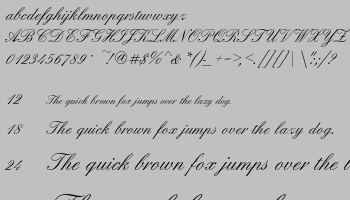 abcdefghijklmnopqrstuvwxyz
ABCDEFGHIJKLMNOPQRSTUVWXYZ
0123456789` ~!@#$%^& *()-_ +=>,<. [][]{} | \ ":;/?
12 The quick brown fox jumps over the lazy dog.
18 The quick brown fox jumps over the lazy dog.
24 The quick brown fox jumps over the